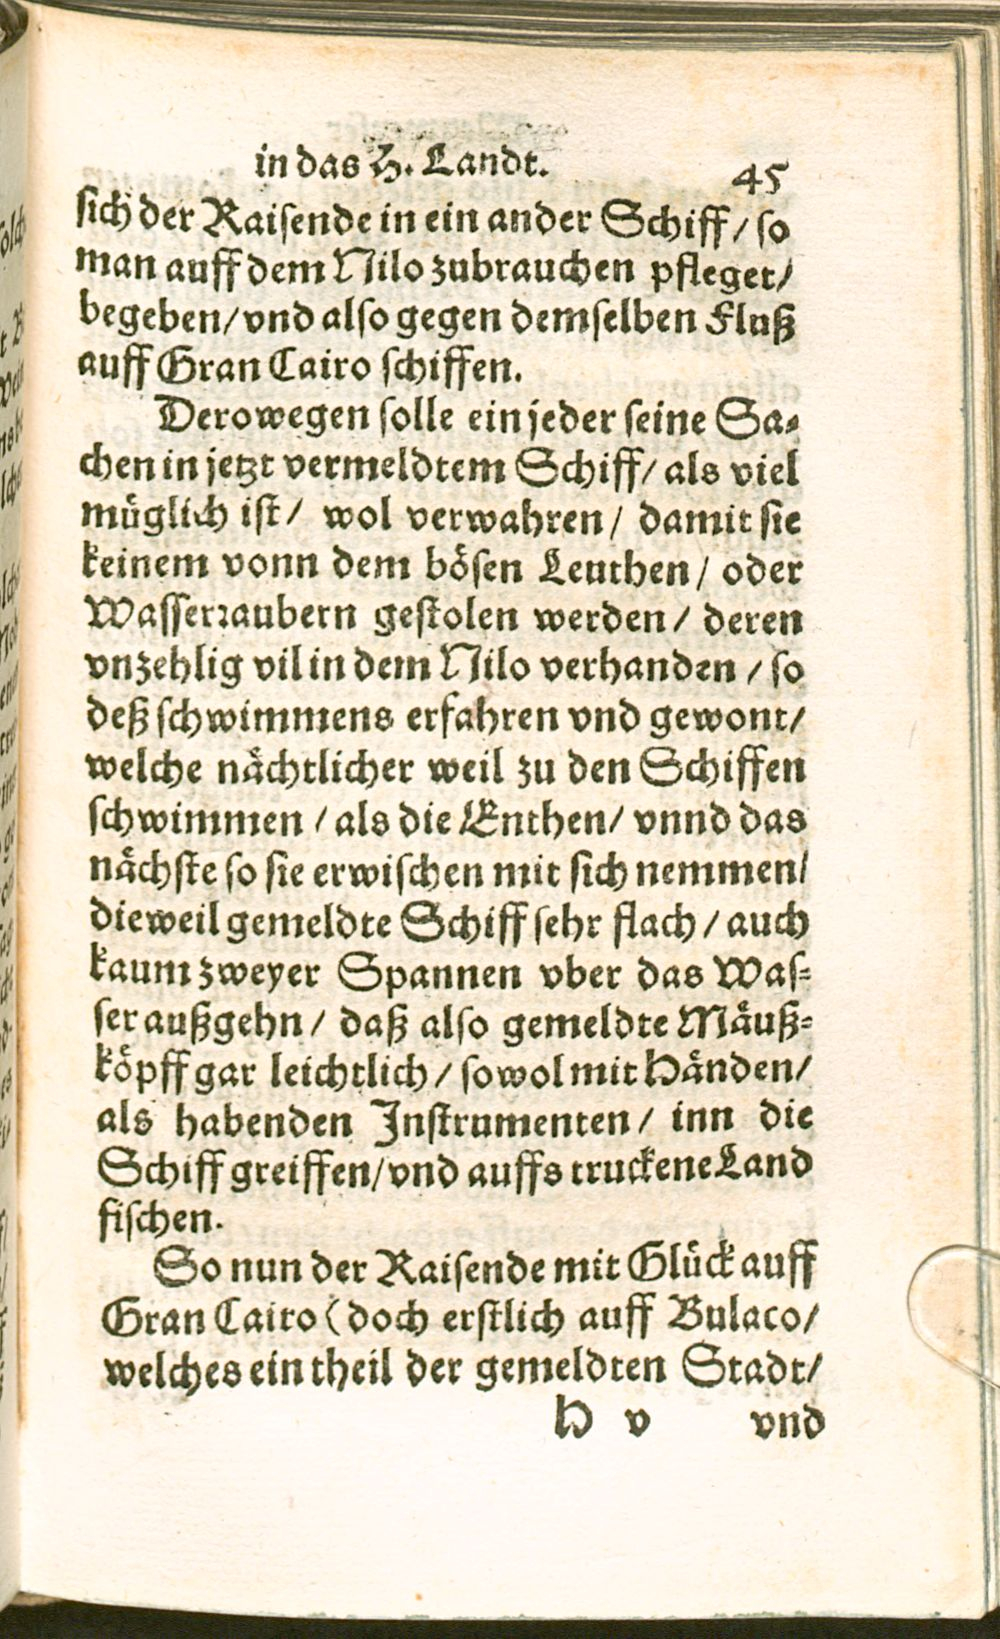 in das H. Landt. 45
sich der Raisende in ein ander Schiff / so
man auff dem Nilo zubrauchen pfleget /
begeben / vnd also gegen demselben Fluß
auff Gran Cairo schiffen.
Derowegen solle ein jeder seine Sa⸗
chen in jetzt vermeldtem Schiff / als viel
müglich ist / wol verwahren / damit sie
keinem vonn dem bösen Leuthen / oder
Wasserraubern gestolen werden / deren
vnzehlig vil in dem Nilo verhanden / so
deß schwimmens erfahren vnd gewont /
welche nächtlicher weil zu den Schiffen
schwimmen / als die Enthen / vnnd das
nächste so sie erwischen mit sich nemmen /
dieweil gemeldte Schiff sehr flach / auch
kaum zweyer Spannen vber das Was⸗
ser außgehn / daß also gemeldte Mäuß⸗
köpff gar leichtlich / sowol mit Händen /
als habenden Instrumenten / inn die
Schiff greiffen / vnd auffs truckene Land
fischen.
So nun der Raisende mit Glück auff
Gran Cairo (doch erstlich auff Bulaco /
welches ein theil der gemeldten Stadt /
H v vnd